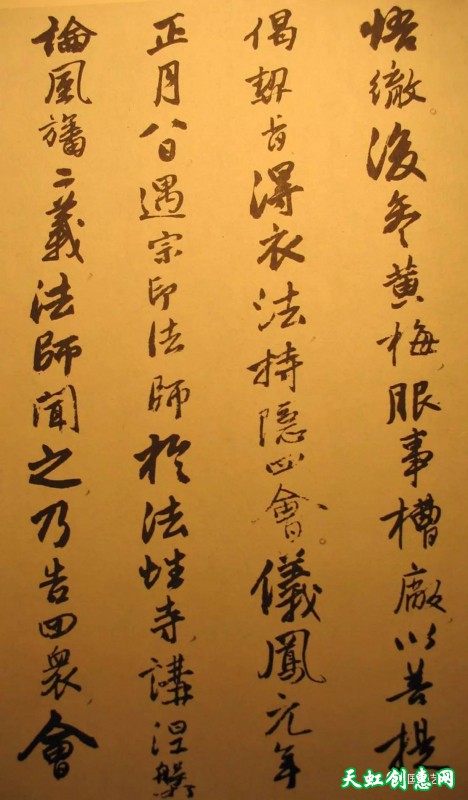 悟徹後參黄梅服事槽廠以菩提
偈契旨得衣法持隱四會儀鳳元年
正月八日遇宗印法師於法性寺講涅槃
論風旛二義法師聞之乃告四衆會
天虹创惠网